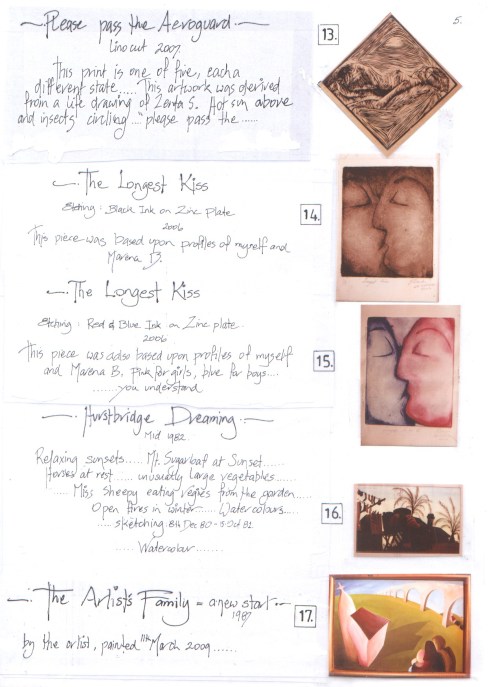 5.
Please pass the Aeroguard
Linocut 2007
This print is one of five, each a
different state..... This artwork was derived
from a life drawing of Zenta S. Hot sun above
and insects circling..."please pass the......
13.
The Longest Kiss
Etching: Black Ink on Zinc Plate
2006
This piece was based upon profiles of myself and
Marena B.
14.
The Longest Kiss
Etching: Red & Blue Ink on Zinc plate
2006
This piece was also based upon profiles of myself
and Marena B. Pink for girls, blue for boys....
........you understand
15.
Hurstbridge Dreaming
Mid 1982
Relaxing sunsets..... Mt. Sugarloaf at Sunset......
Horses at rest...... unusually large vegetables......
..... Miss Sheepy eating from the garden....
Open fires in winter..... Watercolours....
..... sketching. 8th Dec 80 - 5 Oct 81
..... Watercolour.......
16.
The Artist's Family = a new start
1987
by the artist, painted 11th March 2009......
17.